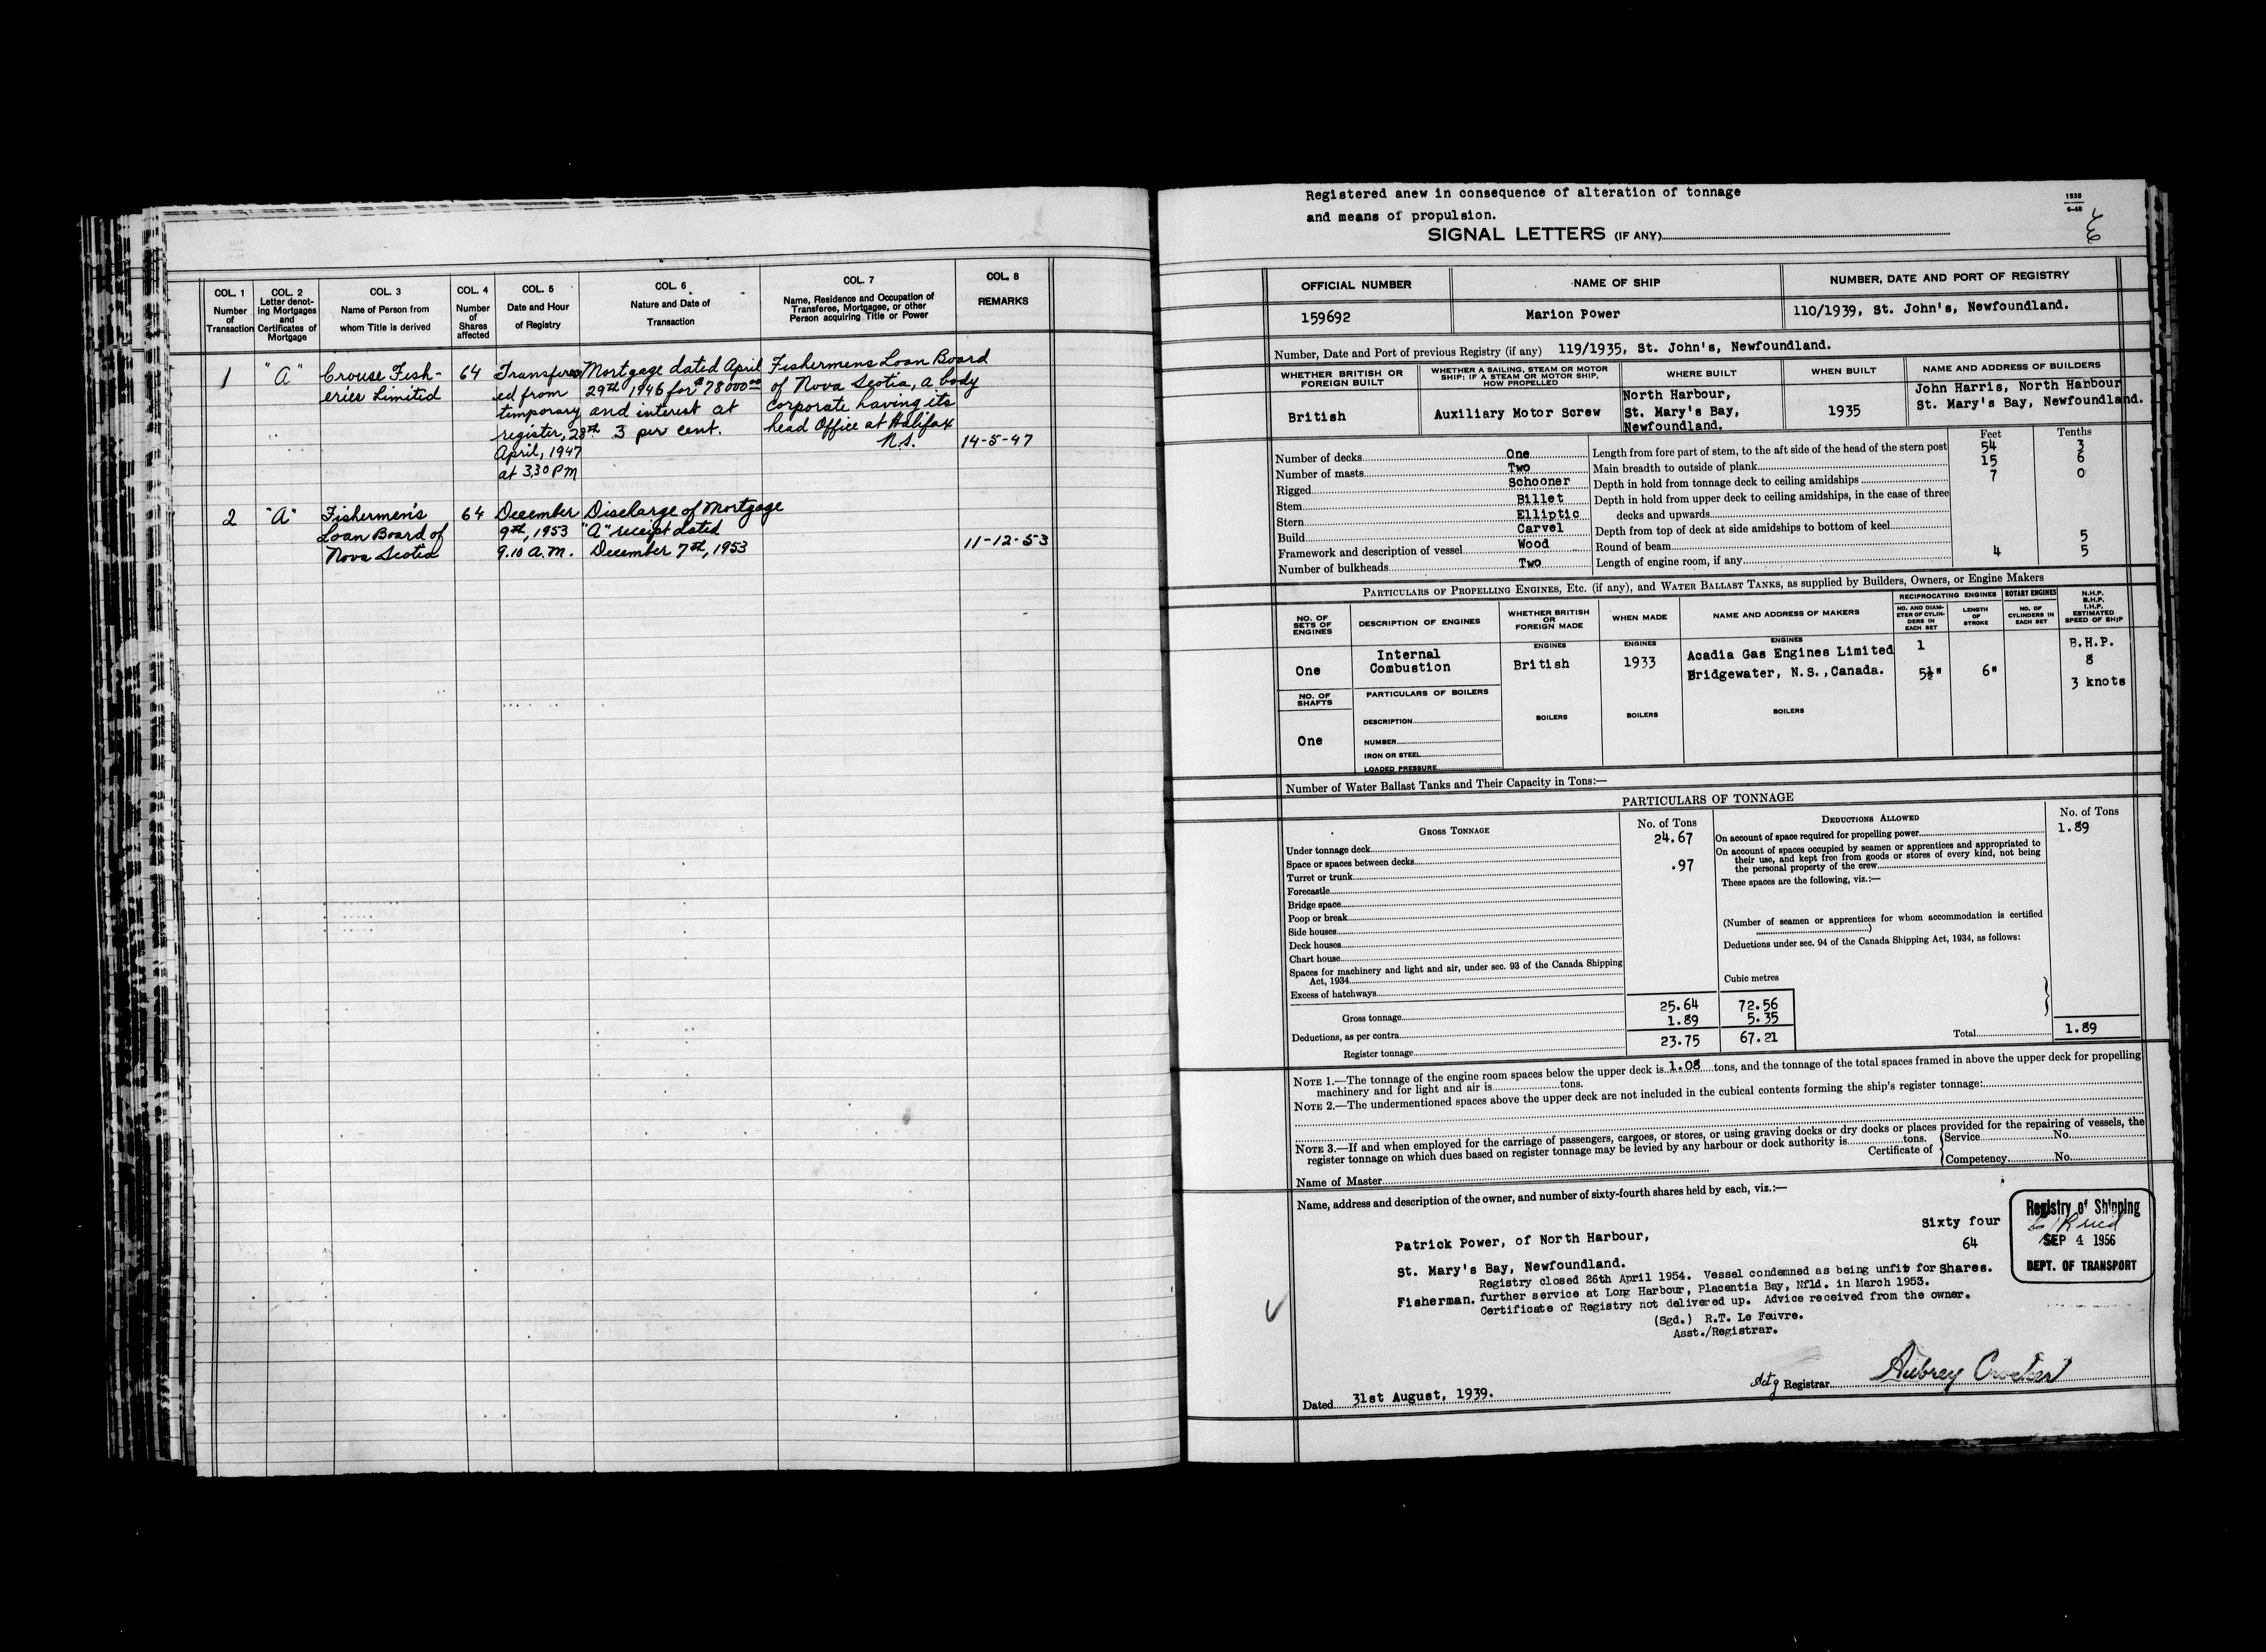 COL. 1
Number
of
Transaction
COL. 2
Letter denot-
ing Mortgages
and
Certificates of
Mortgage
COL. 3
Name of Person from
whom Title is derived
COL. 4
Number
of
Shares
affected
COL. 5
Date and Hour
of Registry
COL. 6
Nature and Date of
Transaction
COL. 7
Name, Residence and Occupation of
Transferee, Mortgagee, or other
Person acquiring Title or Power
COL. 8
REMARKS
1
"A"
Crouse Fish-
eries Limited
64
Transferr-
ed from
temporary
register, 28th
April, 1947
at 3.30 PM
Mortgage dated April
29th 1946 for $78000.00
and interest at
3 per cent.
Fishermens Loan Board
of Nova Scotia, a body
corporate having its
head Office at Halifax
N.S.
14-5-47
2
"A"
Fishermen's
Loan Board of
Nova Scotia
64
December
9th, 1953
9.10 A.M.
Discharge of Mortgage
"A" receipt dated
December 7th, 1953
11-12-53
Registered anew in consequence of alteration of tonnage
and means of propulsion.
SIGNAL LETTERS (IF ANY)
1535
6-48
OFFICIAL NUMBER
NAME OF SHIP
NUMBER, DATE AND PORT OF REGISTRY
159692
Marion Power
110/1939, St. John's, Newfoundland.
Number, Date and Port of previous Registry (if any) 119/1935, St. John's, Newfoundland.
WHETHER BRITISH OR
FOREIGN BUILT
WHETHER A SAILING, STEAM OR MOTOR
SHIP; IF A STEAM OR MOTOR SHIP,
HOW PROPELLED
WHERE BUILT
WHEN BUILT
NAME AND ADDRESS OF BUILDERS
British
Auxiliary Motor Screw
North Harbour,
St. Mary's Bay,
Newfoundland.
1935
John Harris, North Harbour
St. Mary's Bay, Newfoundland.
Feet
Tenths
Number of decks One
Number of masts Two
Rigged Schooner
Stem Billet
Stern Elliptic
Build Carvel
Framework and description of vessel Wood
Number of bulkheads Two
Length from fore part of stem, to the aft side of the head of the stern post 54 3
Main breadth to outside of plank 15 6
Depth in hold from tonnage deck to ceiling amidships 7 0
Depth in hold from upper deck to ceiling amidships, in the case of three
decks and upwards
Depth from top of deck at side amidships to bottom of keel
Round of beam 5
Length of engine room, if any 4 5
PARTICULARS OF PROPELLING ENGINES, ETC. (if any), and WATER BALLAST TANKS, as supplied by Builders, Owners, or Engine Makers
NO. OF
SETS OF
ENGINES
DESCRIPTION OF ENGINES
WHETHER BRITISH
OR
FOREIGN MADE
WHEN MADE
NAME AND ADDRESS OF MAKERS
RECIPROCATING ENGINES
NO. AND DIAM-
ETER OF CYLIN-
DERS IN
EACH SET
LENGTH
OF
STROKE
ROTARY ENGINES
NO. OF
CYLINDERS IN
EACH SET
N.H.P.
B.H.P.
I.H.P.
ESTIMATED
SPEED OF SHIP
ENGINES
ENGINES
ENGINES
One
Internal
Combustion
British
1933
Acadia Gas Engines Limited
Bridgewater, N.S.,Canada.
1
5½"
6"
B.H.P.
8
3 knots
NO. OF
SHAFTS
One
PARTICULARS OF BOILERS
DESCRIPTION
NUMBER
IRON OR STEEL
LOADED PRESSURE
BOILERS
BOILERS
BOILERS
Number of Water Ballast Tanks and Their Capacity in Tons:—
PARTICULARS OF TONNAGE
GROSS TONNAGE
No. of Tons
DEDUCTIONS ALLOWED
No. of Tons
Under tonnage deck 24.67
Space or spaces between decks
Turret or trunk .97
Forecastle
Bridge space
Poop or break
Side houses
Deck houses
Chart house
Spaces for machinery and light and air, under sec. 93 of the Canada Shipping
Act, 1934
Excess of hatchways
Gross tonnage 25.64 72.56
Deductions, as per contra 1.89 5.35
Register tonnage 23.75 67.21
On account of space required for propelling power 1.89
On account of spaces occupied by seamen or apprentices and appropriated to
their use, and kept free from goods or stores of every kind, not being
the personal property of the crew
These spaces are the following, viz.:—
(Number of seamen or apprentices for whom accommodation is certified
)
Deductions under sec. 94 of the Canada Shipping Act, 1934, as follows:
Cubic metres
Total 1.89
NOTE 1.—The tonnage of the engine room spaces below the upper deck is 1.08 tons, and the tonnage of the total spaces framed in above the upper deck for propelling
machinery and for light and air is tons.
NOTE 2.—The undermentioned spaces above the upper deck are not included in the cubical contents forming the ship's register tonnage:
NOTE 3.—If and when employed for the carriage of passengers, cargoes, or stores, or using graving docks or dry docks or places provided for the repairing of vessels, the
register tonnage on which dues based on register tonnage may be levied by any harbour or dock authority is tons.
Certificate of
Service No.
Competency No.
Name of Master
Name, address and description of the owner, and number of sixty-fourth shares held by each, viz.:—
Patrick Power, of North Harbour,
St. Mary's Bay, Newfoundland.
Fisherman.
Sixty four
64
Shares.
Registry closed 26th April 1954. Vessel condemned as being unfit for
further service at Long Harbour, Placentia Bay, Nfld. in March 1953.
Certificate of Registry not delivered up. Advice received from the owner.
(Sgd.) R.T. Le Feuvre.
Asst./Registrar.
Registry of Shipping
SEP 4 1956
DEPT. OF TRANSPORT
Dated 31st August, 1939.
Actg Registrar Aubrey Crocker